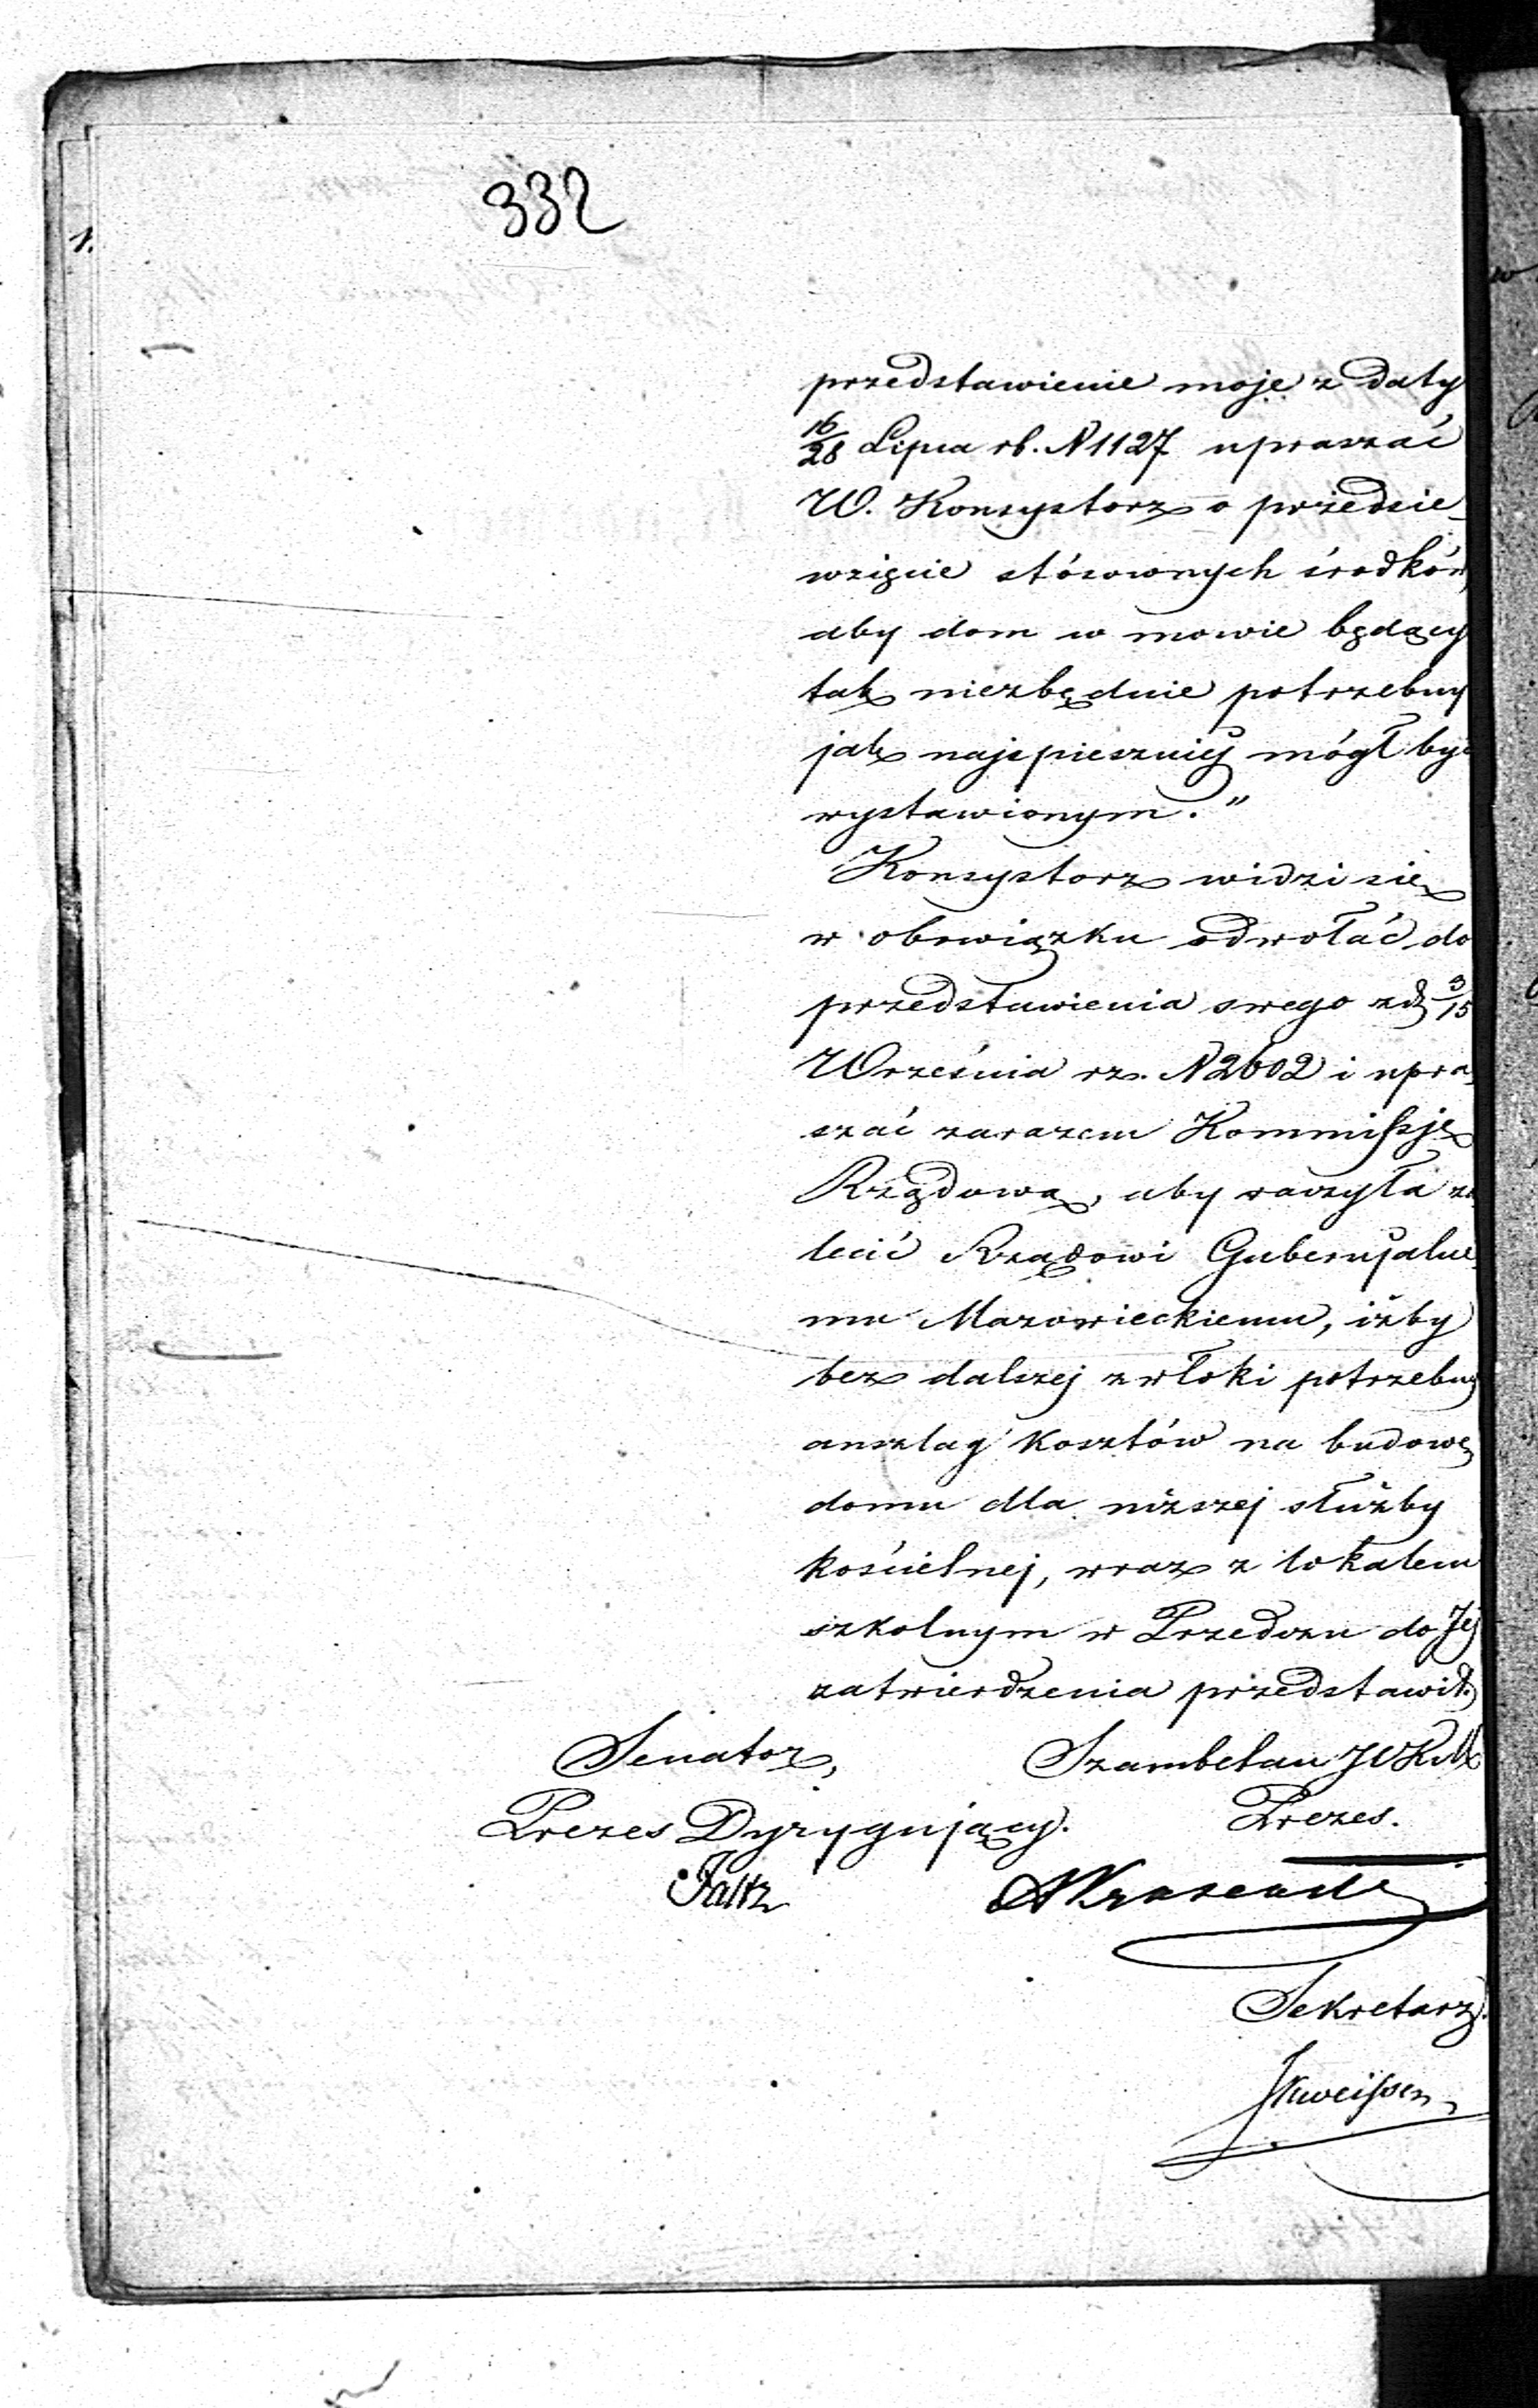 332
1.
przedstawienie moje z daty
16/28 Lipca rb. N 1127 upraszać
W. Konsystorz o przedsie-
wzięcie stósownych środków,
aby dom w mowie będący
tak niezbędnie potrzebny
jak najspieszniej mógł być
wystawionym."
Konsystorz widzi się
w obowiązku odwołać do
przedstawienia swego z d. 3/15
Września rz. N 2602 i upra-
szać zarazem Kommissję
Rządową, aby raczyła za-
lecić Rządowi Gubernjalne-
mu Mazowieckiemu, iżby
bez dalszej zwłoki potrzebny
anszlag kosztów na budowę
domu dla niższej służby
kościelnej, wraz z lokalem
szkolnym w Przedczu do Jej
zatwierdzenia przedstawił.
Senator, Szambelan JCKM
Prezes Dyrygujący. Prezes.
Faltz
Sekretarz.